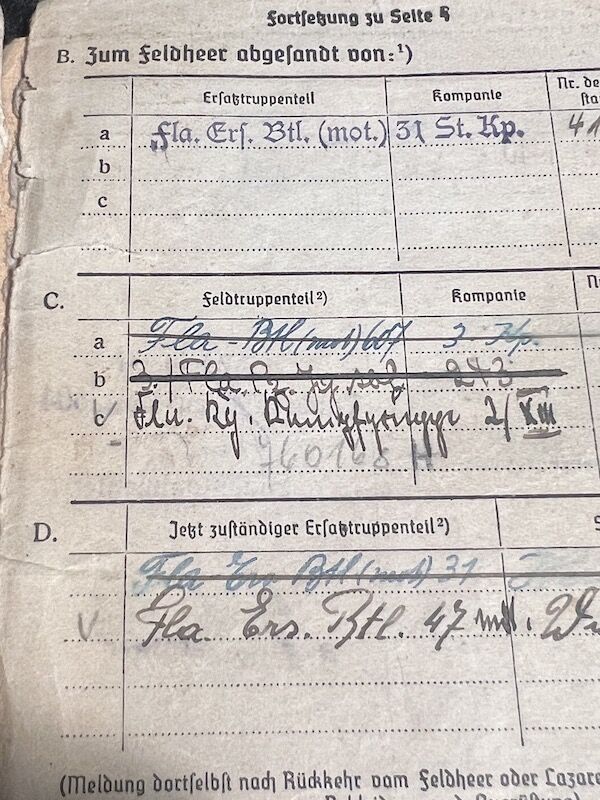 Fortsetzung zu Seite
B. Zum Feldheer abgesandt von:¹)
Ersatztruppenteil Kompanie Nr. de
sta
a Fla. Ers. Btl. (mot.) 31 St. Kp. 41
b
c
C. Feldtruppenteil²) Kompanie
a Fla-Btl (mot) 607 3. Kp.
b 3. Fla. 273
c Kampfgruppe 2/ XIII
D. Jetzt zuständiger Ersatztruppenteil²) S
Fla Ers Btl (mot) 31
V Fla. Ers. Btl. 47 mot.
(Meldung dortselbst nach Rückkehr vom Feldheer oder Lazare